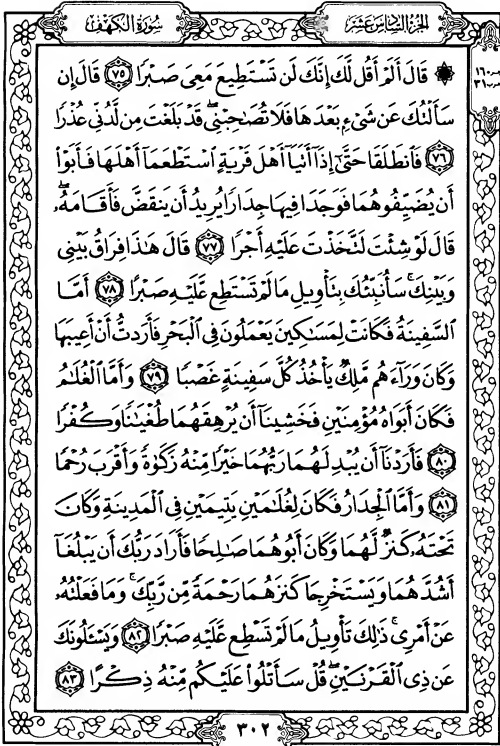 سُورَةُ الكَهْفِ
الجُزْءُ السَّادِسُ عَشَرَ
۞ قَالَ أَلَمْ أَقُل لَّكَ إِنَّكَ لَن تَسْتَطِيعَ مَعِىَ صَبْرًا ٧٥ قَالَ إِن
سَأَلْتُكَ عَن شَىْءٍۭ بَعْدَهَا فَلَا تُصَٰحِبْنِى ۖ قَدْ بَلَغْتَ مِن لَّدُنِّى عُذْرًا
٧٦ فَٱنطَلَقَا حَتَّىٰٓ إِذَآ أَتَيَآ أَهْلَ قَرْيَةٍ ٱسْتَطْعَمَآ أَهْلَهَا فَأَبَوْا۟
أَن يُضَيِّفُوهُمَا فَوَجَدَا فِيهَا جِدَارًا يُرِيدُ أَن يَنقَضَّ فَأَقَامَهُۥ ۖ
قَالَ لَوْ شِئْتَ لَتَّخَذْتَ عَلَيْهِ أَجْرًا ٧٧ قَالَ هَٰذَا فِرَاقُ بَيْنِى
وَبَيْنِكَ ۚ سَأُنَبِّئُكَ بِتَأْوِيلِ مَا لَمْ تَسْتَطِع عَّلَيْهِ صَبْرًا ٧٨ أَمَّا
ٱلسَّفِينَةُ فَكَانَتْ لِمَسَٰكِينَ يَعْمَلُونَ فِى ٱلْبَحْرِ فَأَرَدتُّ أَنْ أَعِيبَهَا
وَكَانَ وَرَآءَهُم مَّلِكٌ يَأْخُذُ كُلَّ سَفِينَةٍ غَصْبًا ٧٩ وَأَمَّا ٱلْغُلَٰمُ
فَكَانَ أَبَوَاهُ مُؤْمِنَيْنِ فَخَشِينَآ أَن يُرْهِقَهُمَا طُغْيَٰنًا وَكُفْرًا
٨٠ فَأَرَدْنَآ أَن يُبْدِلَهُمَا رَبُّهُمَا خَيْرًا مِّنْهُ زَكَوٰةً وَأَقْرَبَ رُحْمًا
٨١ وَأَمَّا ٱلْجِدَارُ فَكَانَ لِغُلَٰمَيْنِ يَتِيمَيْنِ فِى ٱلْمَدِينَةِ وَكَانَ
تَحْتَهُۥ كَنزٌ لَّهُمَا وَكَانَ أَبُوهُمَا صَٰلِحًا فَأَرَادَ رَبُّكَ أَن يَبْلُغَآ
أَشُدَّهُمَا وَيَسْتَخْرِجَا كَنزَهُمَا رَحْمَةً مِّن رَّبِّكَ ۚ وَمَا فَعَلْتُهُۥ
عَنْ أَمْرِى ۚ ذَٰلِكَ تَأْوِيلُ مَا لَمْ تَسْطِع عَّلَيْهِ صَبْرًا ٨٢ وَيَسْـَٔلُونَكَ
عَن ذِى ٱلْقَرْنَيْنِ ۖ قُلْ سَأَتْلُوا۟ عَلَيْكُم مِّنْهُ ذِكْرًا ٨٣
٣٠٢